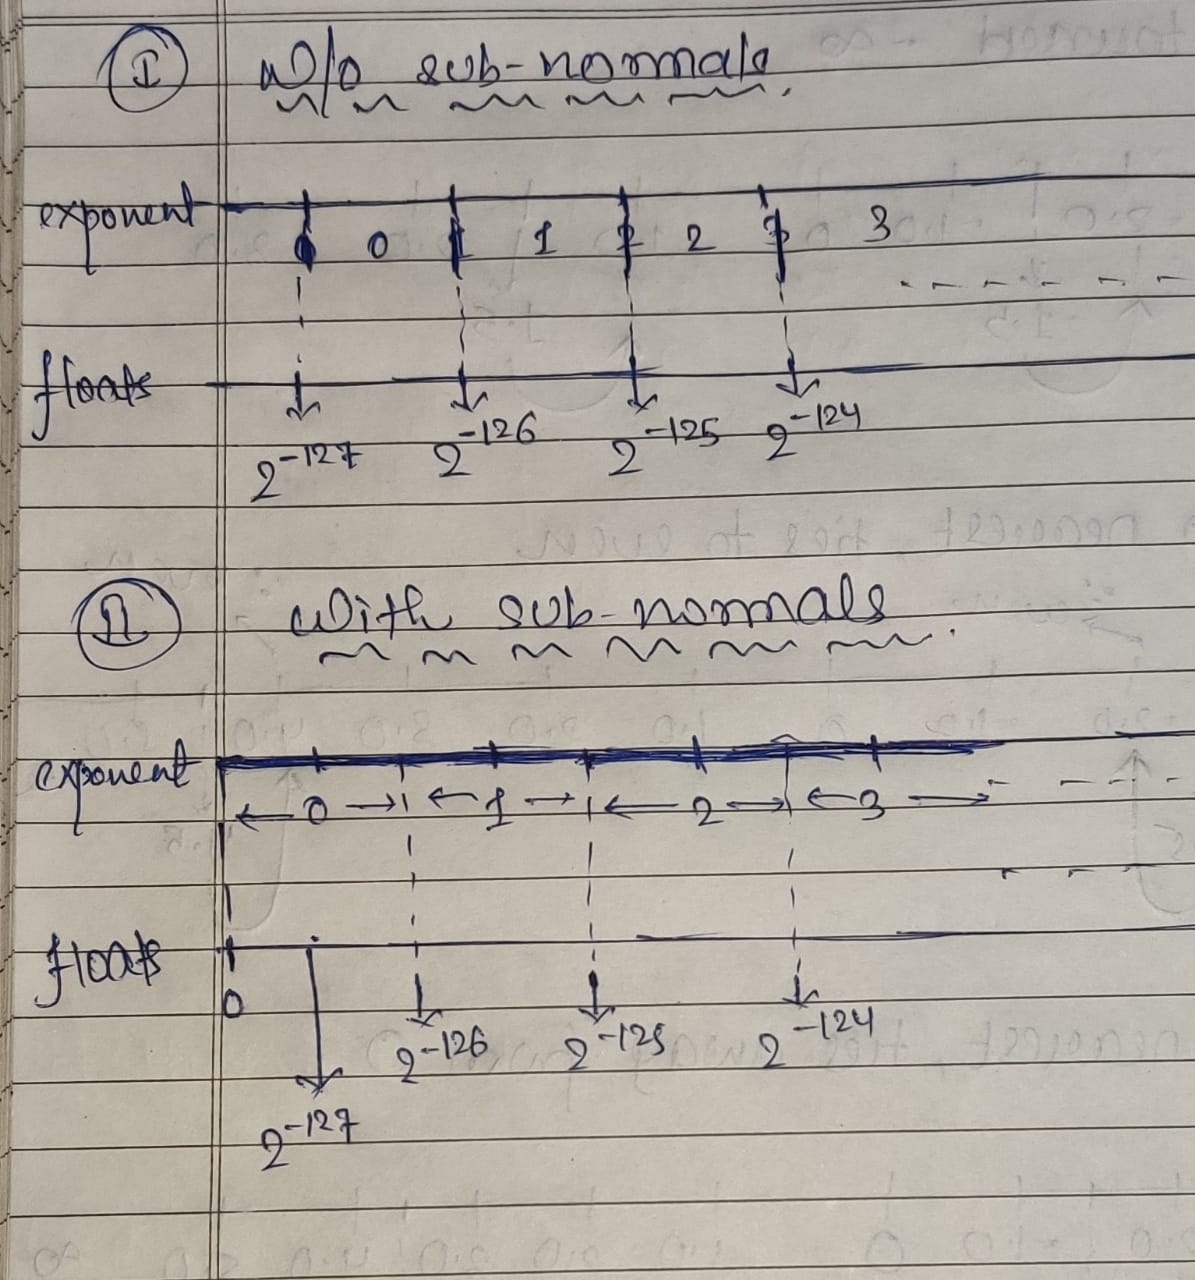 I w/o sub-normals.
exponent 0 1 2 3
floats
2^-127 2^-126 2^-125 2^-124
II with sub-normals.
exponent
0 1 2 3
floats
0
2^-126 2^-125 2^-124
2^-127